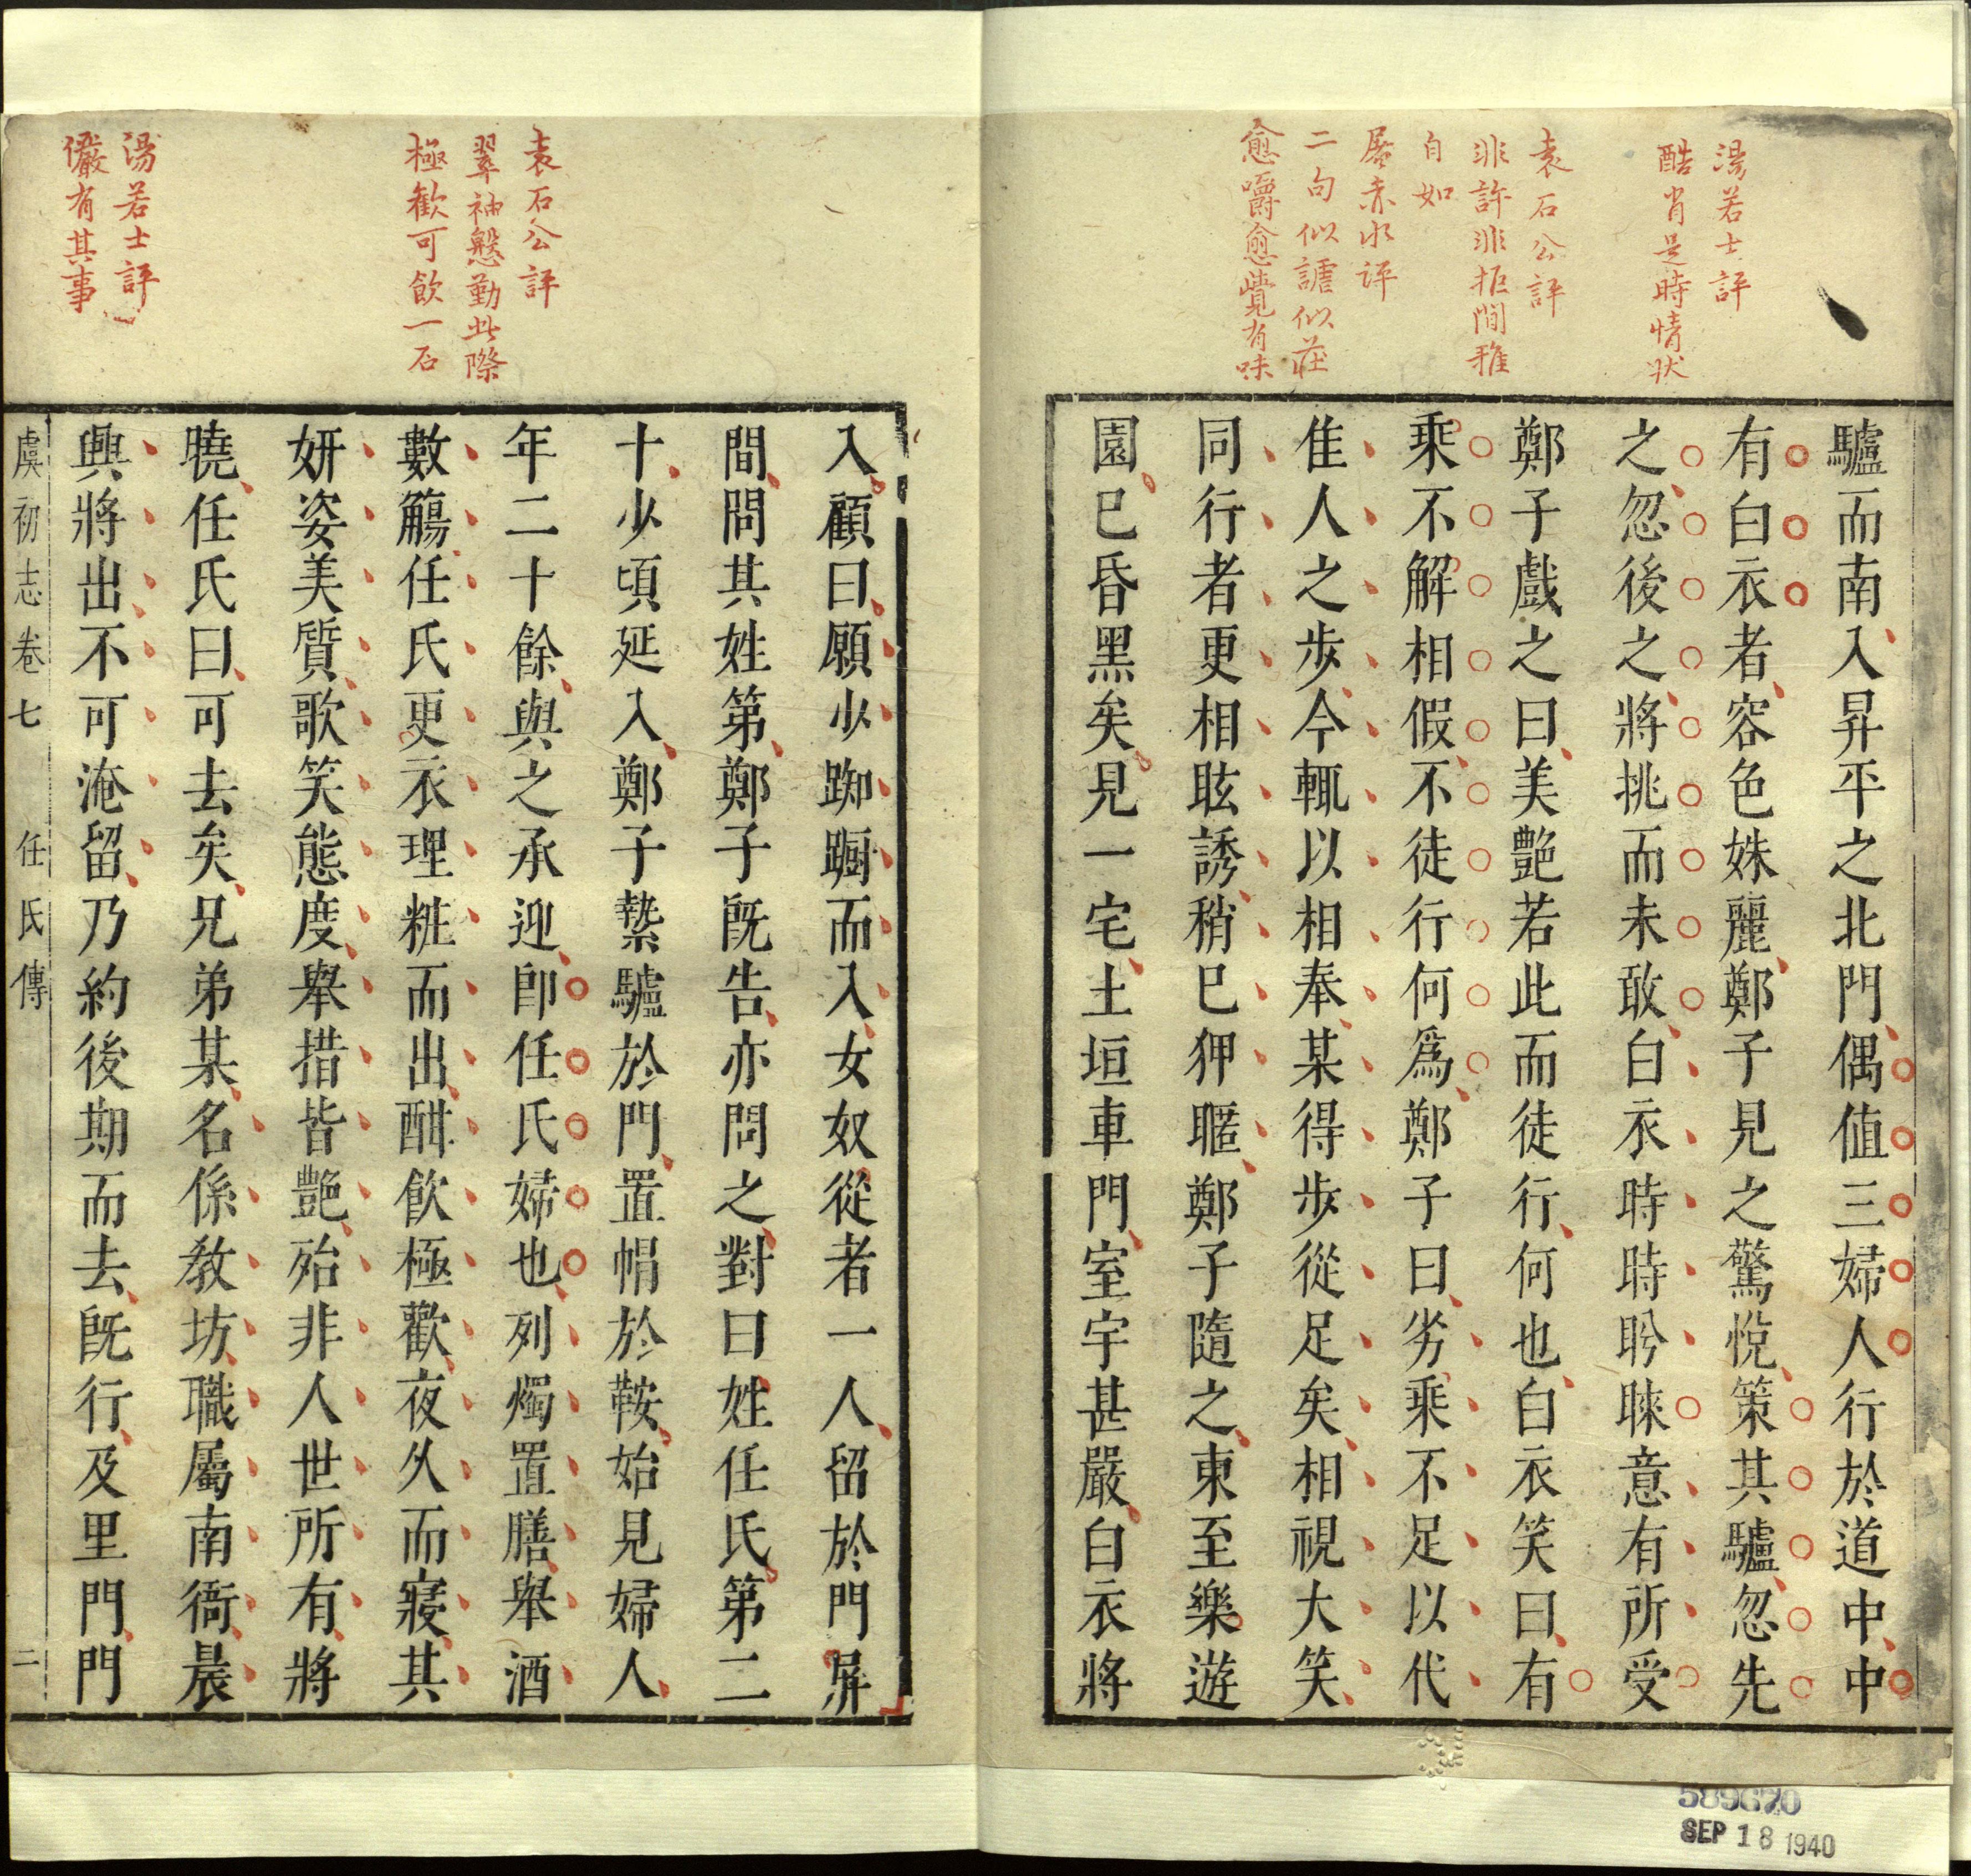 湯若士評
酷肖是時情狀
袁石公評
非許非拒閒雅
自如
屠赤水評
二句似謔似莊
愈嚼愈覺有味
驢而南入昇平之北門偶值三婦人行於道中中
有白衣者容色姝麗鄭子見之驚悅策其驢忽先
之忽後之將挑而未敢白衣時時盻睞意有所受
鄭子戲之曰美艷若此而徒行何也白衣笑曰有
乘不解相假不徒行何爲鄭子曰劣乘不足以代
佳人之步今輒以相奉某得步從足矣相視大笑
同行者更相眩誘稍已狎暱鄭子隨之東至樂遊
園已昏黑矣見一宅土垣車門室宇甚嚴白衣將
袁石公評
翠袖慇勤此際
極歡可飲一石
湯若士評
儼有其事
入顧曰願少踟躕而入女奴從者一人留於門屏
間問其姓第鄭子既告亦問之對曰姓任氏第二
十少頃延入鄭子縶驢於門置帽於鞍始見婦人
年二十餘與之承迎卽任氏婦也列燭置膳舉酒
數觴任氏更衣理粧而出酣飲極歡夜久而寢其
妍姿美質歌笑態度舉措皆艷殆非人世所有將
曉任氏曰可去矣兄弟某名係教坊職屬南衙晨
興將出不可淹留乃約後期而去既行及里門門
虞初志卷七 任氏傳 二
589670
SEP 18 1940